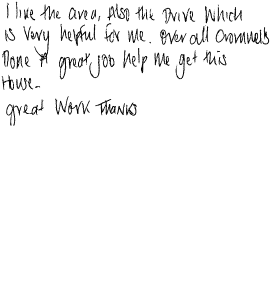 I like the area, Also the Drive Which
is Very helpful for me. Over all Cromwells
Done A great job help me get this
House.
great Work Thanks